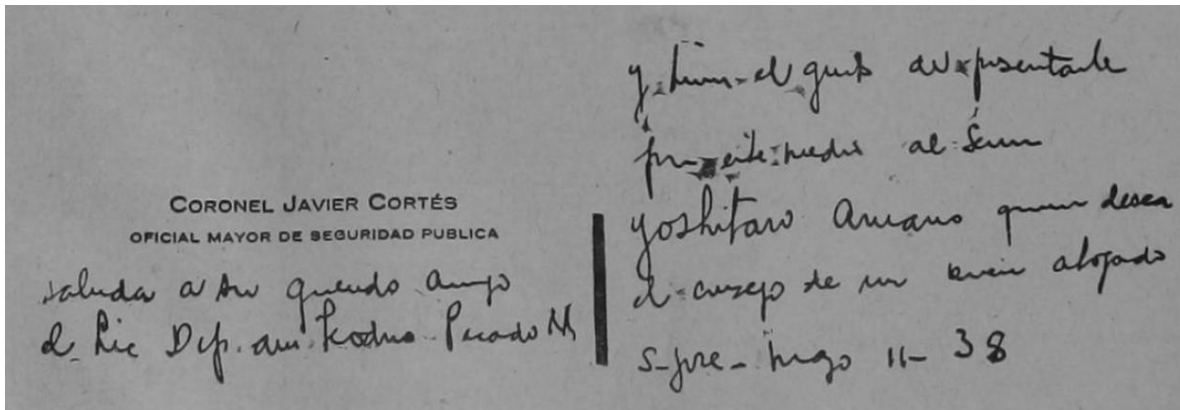 CORONEL JAVIER CORTÉS
OFICIAL MAYOR DE SEGURIDAD PUBLICA
saluda a su querido amigo
el Lic Dip. don Teodoro Picado M
y tiene el gusto de presentarle
por este medio al Señor
Yoshitaro Amano quien desea
el consejo de un buen abogado
S-José - Mzo 11- 38